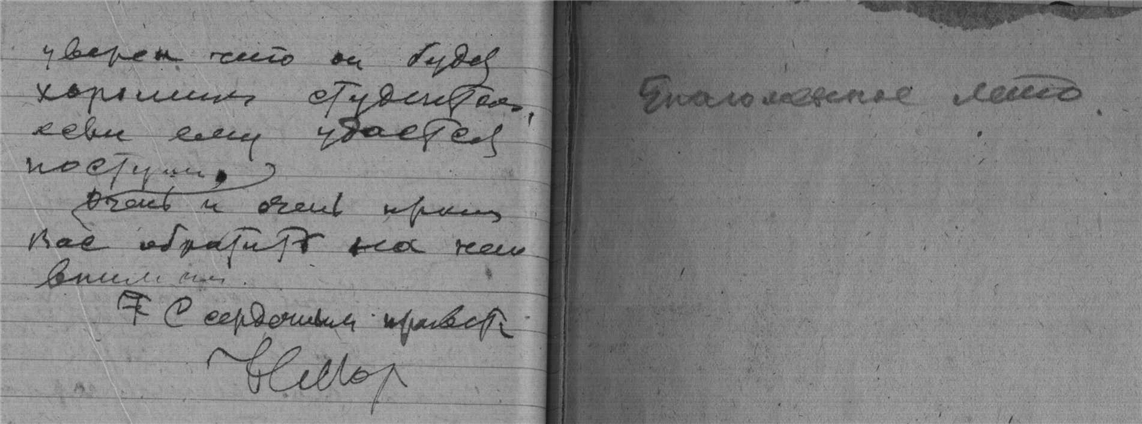 уверен что он будет
хорошим студентом,
если ему удастся
поступи
Очень и очень прошу
Вас обратить на него
вниман
С сердечным приветом
лето